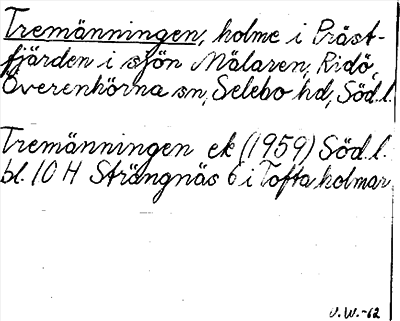 Tremänningen, holme i Präst-
fjärden i sjön Mälaren, Ridö,
Överenhörna sn, Selebo hd, Söd.l.
Tremänningen ek (1959) Söd.l.
bl. 10 H Strängnäs 6 i Tofta holmar
V.W.-62